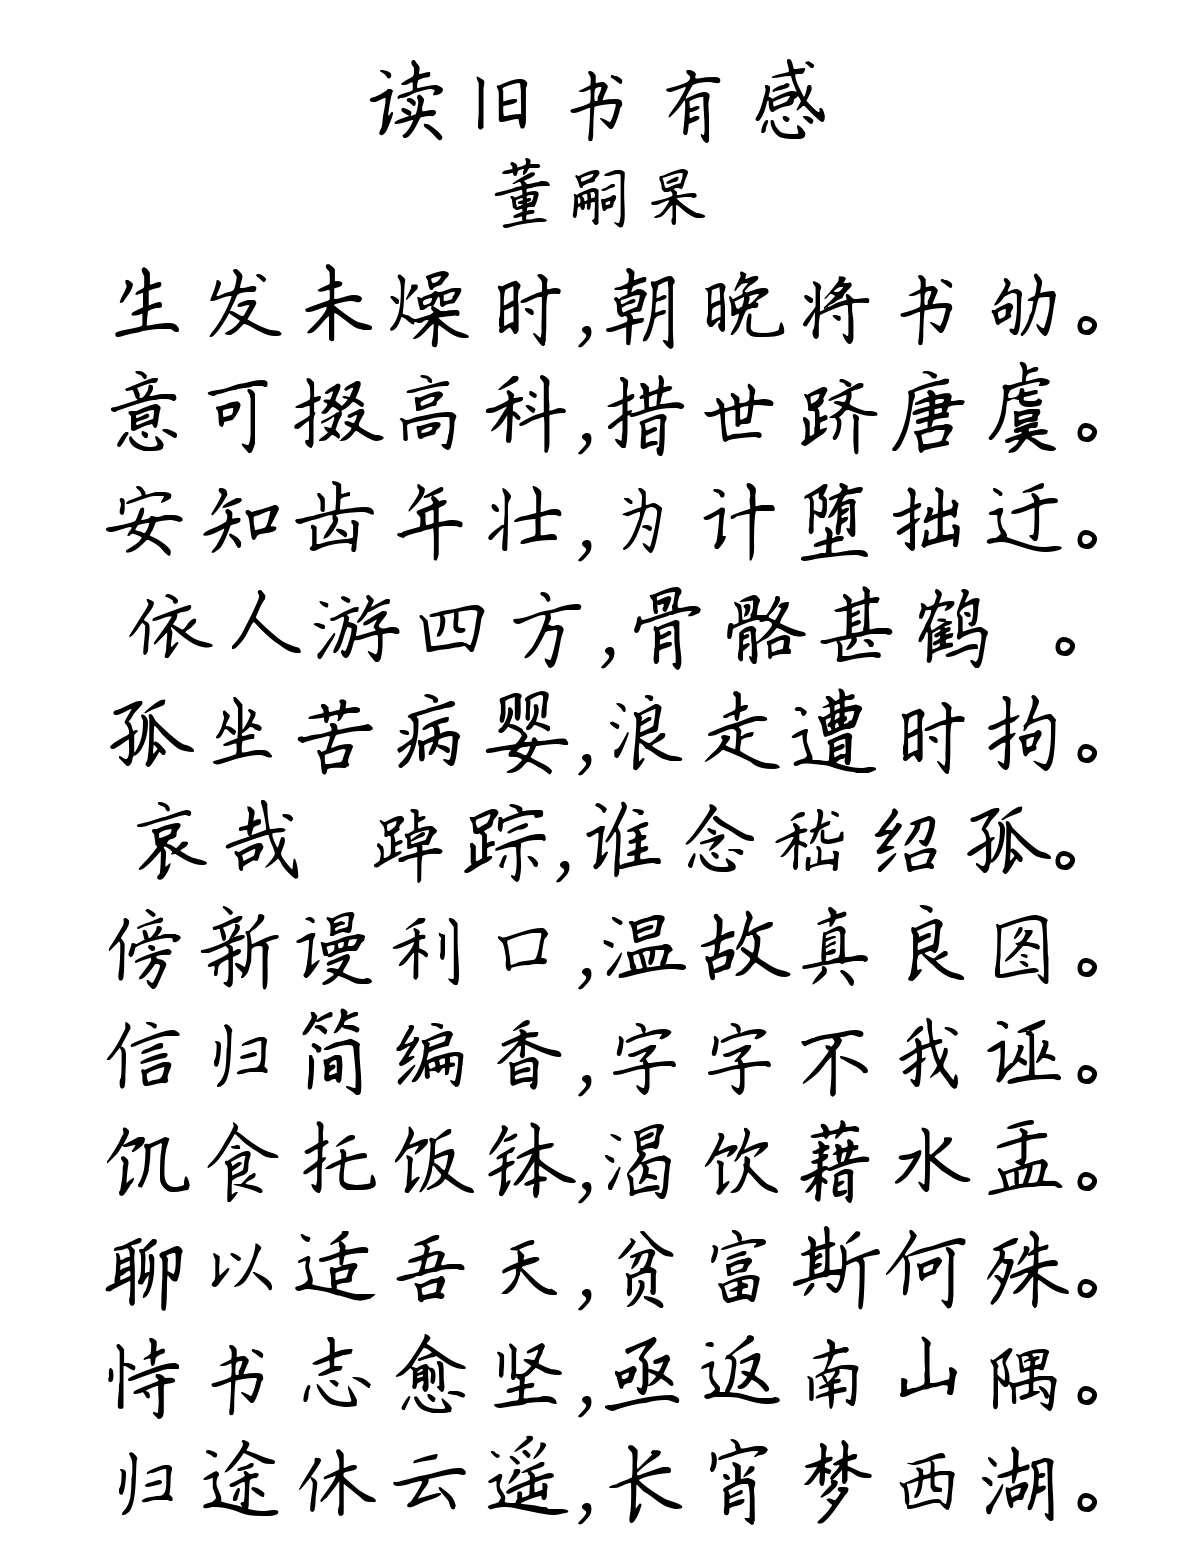 读旧书有感
董嗣杲
生发未燥时,朝晚将书劬。
意可掇高科,措世跻唐虞。
安知齿年壮,为计堕拙迂。
依人游四方,骨骼甚鹤 。
孤坐苦病婴,浪走遭时拘。
哀哉 踔踪,谁念嵇绍孤。
傍新谩利口,温故真良图。
信归简编香,字字不我诬。
饥食托饭钵,渴饮藉水盂。
聊以适吾天,贫富斯何殊。
恃书志愈坚,亟返南山隅。
归途休云遥,长宵梦西湖。